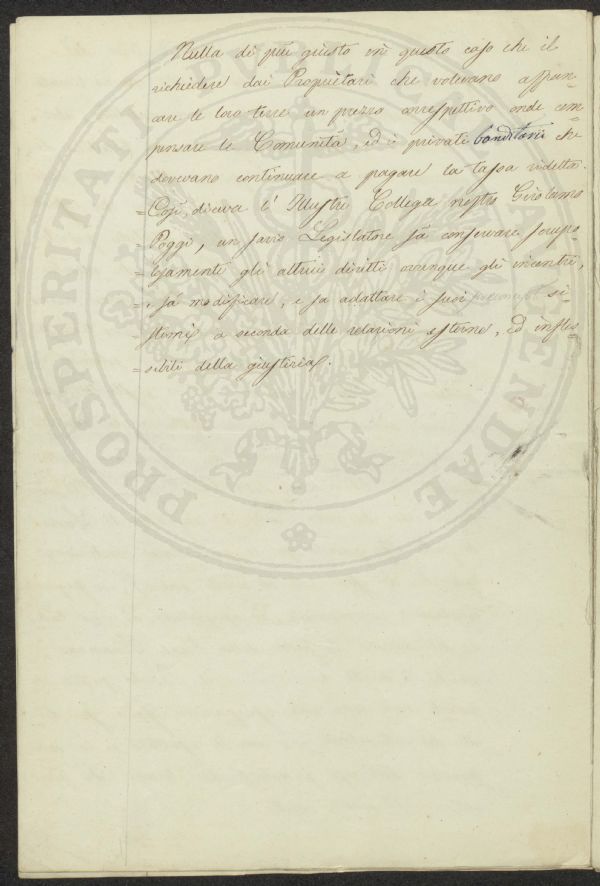 Nulla di più giusto in questo caso che il
richiedere dai Proprietari che volevano affran=
care le loro terre un prezzo correspettivo onde com=
pensare le Comunità, ed i privati banditari che
dovevano continuare a pagare la tassa ridetta.
=Così, diceva l'Illustre Collega nostro Girolamo
=Poggi, un savio Legislatore sà conservare scrupo=
=losamente gli altrui diritti ovunque gli incontri,
= e sà modificare, e sa adattare i suoi si=
=stemi a seconda delle relazioni esterne, ed infles=
=sibili della giustizia.
PROSPERITATI PUBLICAE AUGENDAE